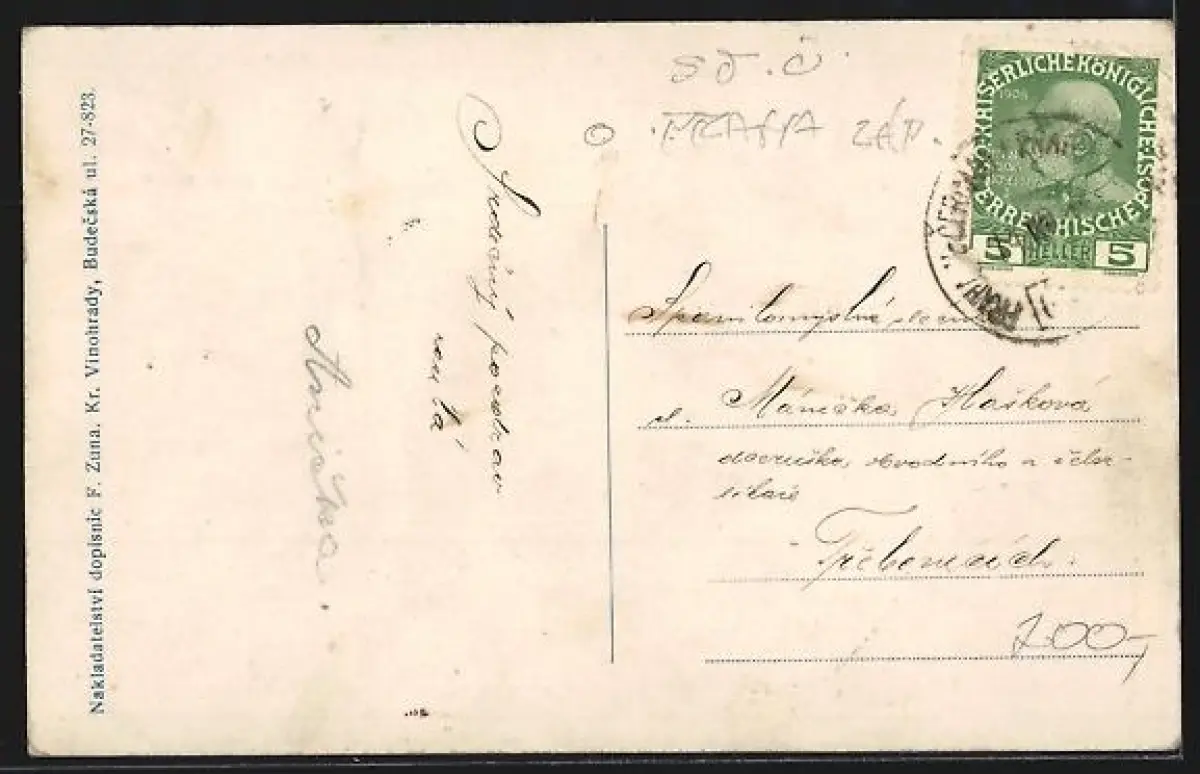 Nakladatelství dopisnic F. Zuna, Kr. Vinohrady, Budečská ul. 27-823.
Srdečný pozdrav
Anička.
SŤ.Č
PRAHA ZÁP.
KAISERLICHE KÖNIGLICHE ÖSTERREICHISCHE POST
1908
5 HELLER 5
Spanilomyslná slečna
sl.
Mánička Hašková
obvodního a
Třebenicích.
200,-